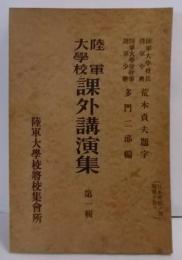 陸軍大學校長
陸軍中將 荒木貞夫題字
陸軍大學校幹事
陸軍少將 多門二郎編
陸軍
大學校
課外講演集 第一輯
陸軍大學校將校集會所